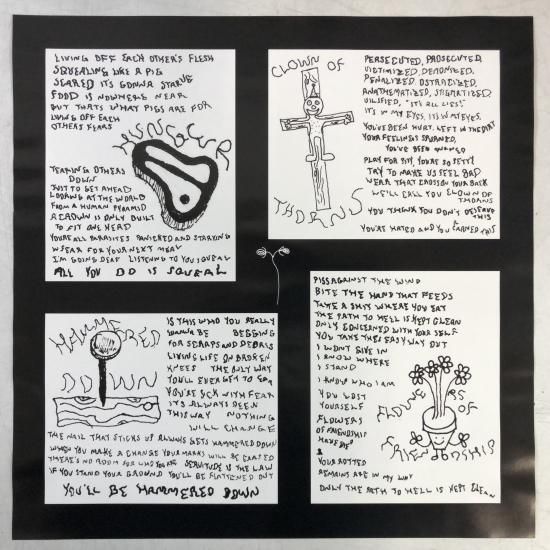 LIVING OFF EACH OTHER'S FLESH
SQUEALING LIKE A PIG
SCARED IT'S GONNA STARVE
FOOD IS NOWHERE NEAR
BUT THATS WHAT PIGS ARE FOR
LIVING OFF EACH
OTHERS FEARS
TEARING OTHERS
DOWN
JUST TO GET AHEAD
LOOKING AT THE WORLD
FROM A HUMAN PYRAMID
A CROWN IS ONLY BUILT
TO FIT ONE HEAD
YOU'RE ALL PARASITES PANICKED AND STARVING
WHEAR FOR YOUR NEXT MEAL
I'M GOING DEAF LISTENING TO YOU SQUEAL
ALL YOU DO IS SQUEAL
CLOWN OF
THORNS
PERSECUTED, PROSECUTED,
VICTIMIZED, DEMONIZED,
PENALIZED, OSTRACIZED,
ANATHEMATIZED, STIGMATIZED
VILIFIED, "IT'S ALL LIES!"
IT'S IN MY EYES, IT'S IN MY EYES.
YOU'VE BEEN HURT, LEFT IN THE DIRT
YOUR FEELINGS SPURNED,
YOU'VE BEEN
PLAY FOR PITY, YOU'RE SO PETTY
TRY TO MAKE US FEEL BAD
WEAR THAT CROSS ON YOUR BACK
WE'LL CALL YOU CLOWN OF
THORNS
YOU THINK YOU DON'T DESERVE
THIS
YOU'RE HATED AND YOU EARNED THIS
HAMMERED
DOWN
IS THIS WHO YOU REALLY
WANNA BE BEGGING
FOR SCRAPS AND DEBRIS
LIVING LIFE ON BROKEN
KNEES THE ONLY WAY
YOU'LL EVER GET TO EAT
YOU'RE SICK WITH FEAR
IT'S ALWAYS BEEN
THIS WAY NOTHING
WILL CHANGE
THE NAIL THAT STICKS UP ALWAYS GETS HAMMERED DOWN
WHEN YOU MAKE A CHANGE YOUR MARKS WILL BE ERASED
THERE'S NO ROOM FOR WHO YOU ARE SERVITUDE IS THE LAW
IF YOU STAND YOUR GROUND YOU'LL BE FLATTENED OUT
YOU'LL BE HAMMERED DOWN
PISS AGAINST THE WIND
BITE THE HAND THAT FEEDS
TAKE A SHIT WHERE YOU EAT
THE PATH TO HELL IS KEPT CLEAN
ONLY CONCERNED WITH YOUR SELF
YOU TAKE THE EASY WAY OUT
I WON'T GIVE IN
I KNOW WHERE
I STAND
I KNOW WHO I AM
YOU LOST
YOURSELF
FLOWERS
OF FRIENDSHIP
HAVE DIED
&
YOUR ROTTED
REMAINS ARE IN MY WAY
ONLY THE PATH TO HELL IS KEPT CLEAN
FLOWERS OF
FRIENDSHIP